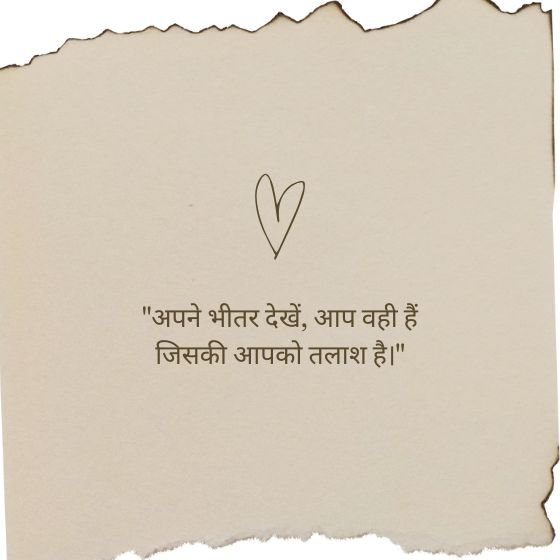 "अपने भीतर देखें, आप वही हैं
जिसकी आपको तलाश है।"